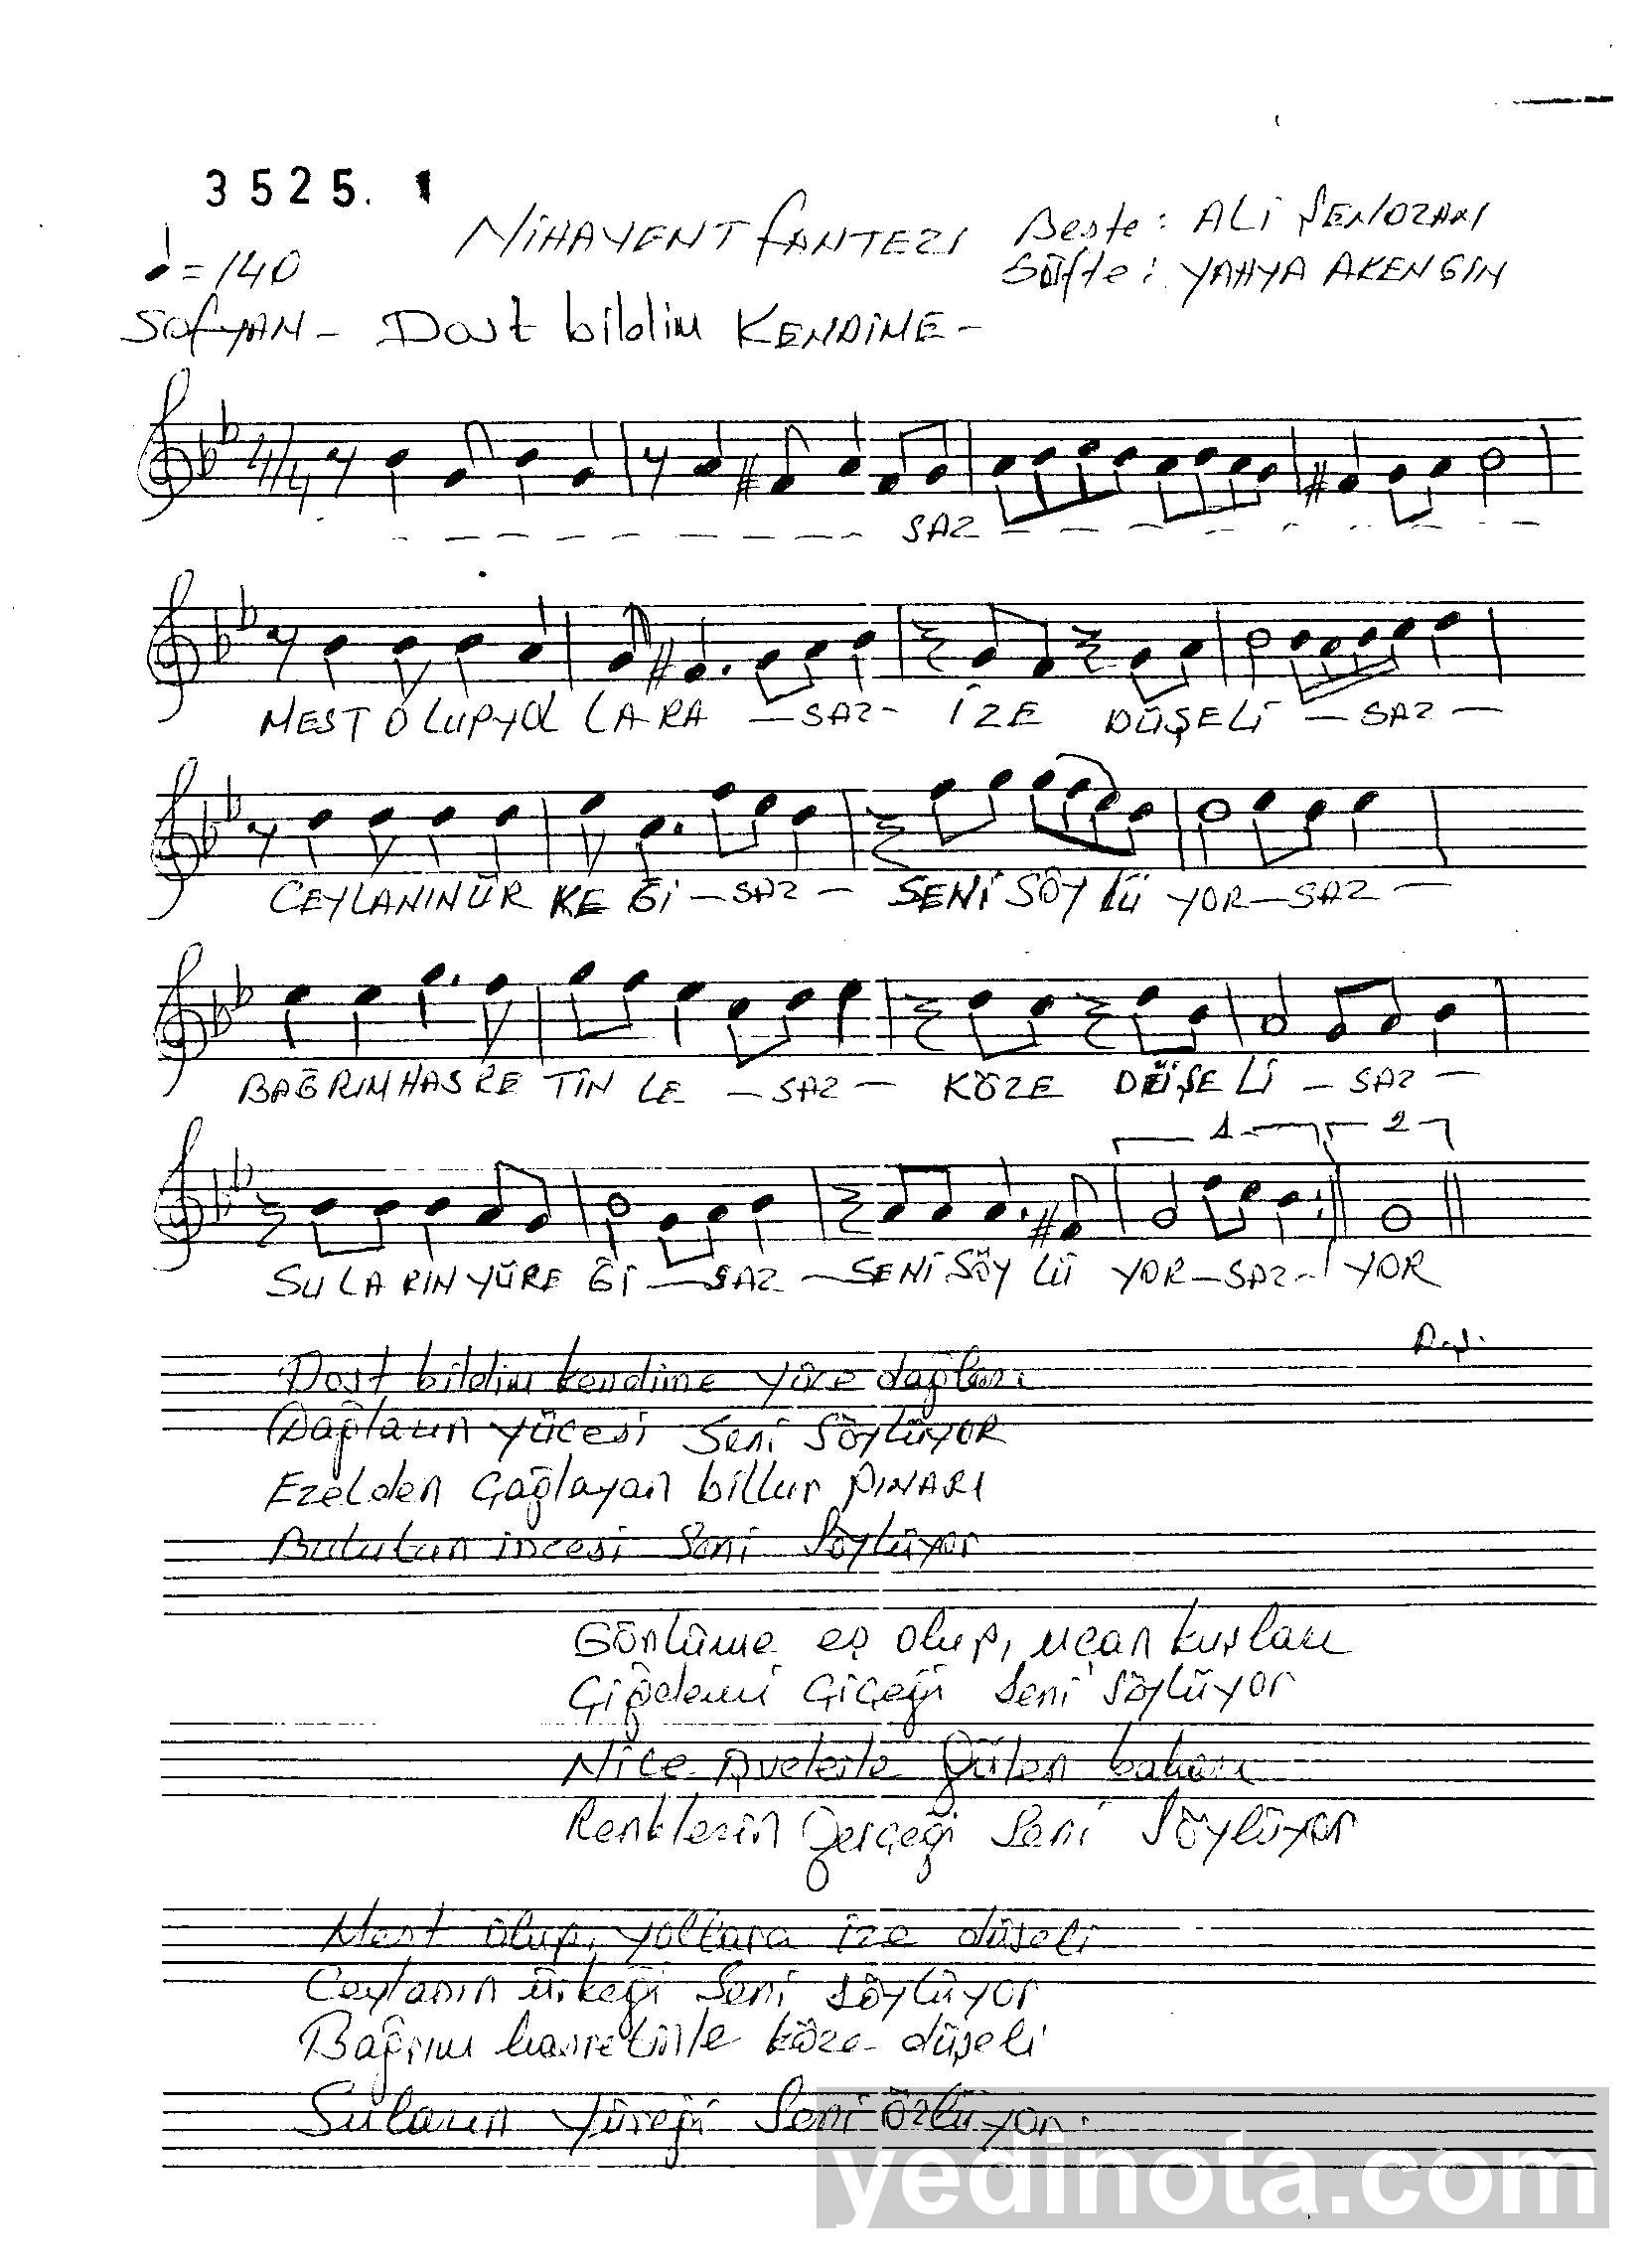 3525. 1
NİHAVENT FANTEZİ Beste: ALİ ŞENOZAN
♩=140 Güfte: YAHYA AKENGİN
Sofyan - Dost bildim KENDİME -
4/4
SAZ
MEST OLUP YOL LA RA - SAZ - İZE DÜŞELİ - SAZ -
CEYLANIN ÜR KE Ğİ - SAZ - SENİ SÖY LÜ YOR - SAZ -
BAĞRIM HASRE TİN LE - SAZ - KÖZE DÜŞE Lİ - SAZ -
1 2
SU LA RIN YÜRE Ğİ - SAZ - SENİ SÖY LÜ YOR - SAZ - YOR
Dost bildim kendime yüce dağları
Dağların yücesi Seni Söylüyor
Ezelden Çağlayan billur PINARI
Bulutun incesi Seni Söylüyor
Gönlüme eş olup, uçan kuşları
Çiğdemi Çiçeği Seni Söylüyor
Nice işvelerle gülen baharı
Renklerin gerçeği Seni Söylüyor
Mest olup, yollara ize düşeli
Ceylanın ürkeği Seni söylüyor
Bağrım hasretinle köze düşeli
Suların yüreği Seni özlüyor.
yedinota.com